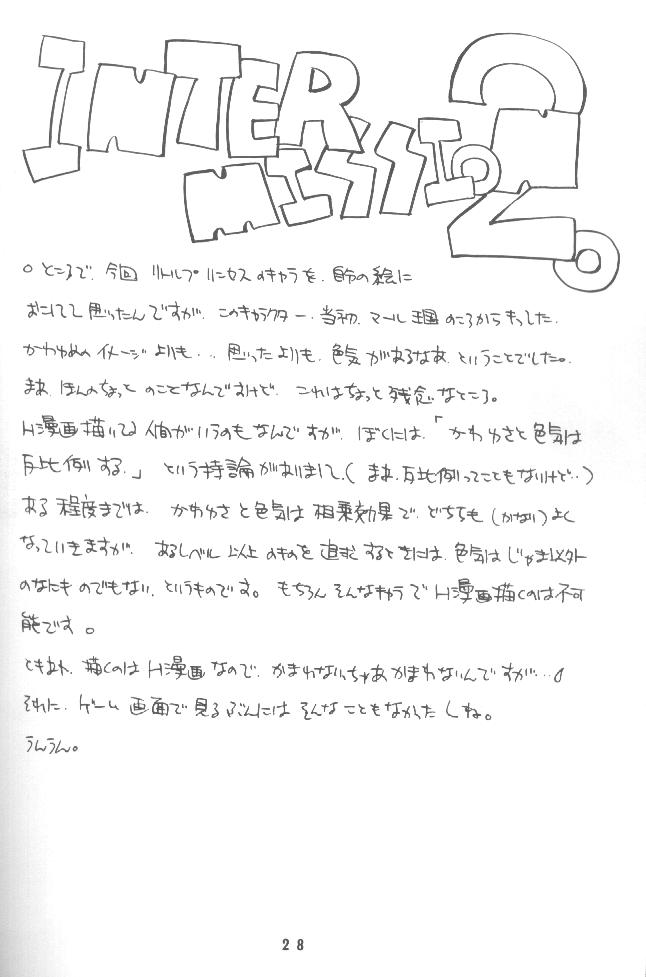 INTER
MISSION
NO.2
○ところで、今回 リトルプリンセスのキャラを、自分の絵に
おこしてて思ったんですが、このキャラクター、当初、マール王国のころからもってした、
かわゆめのイメージよりも、‥思ったよりも、色気があるなあ、ということでした。
まあ、ほんのちょっとのことなんですけど、これはちょっと残念なところ。
H漫画描いてる人間がいうのもなんですが、ぼくには、「かわゆさと色気は
反比例する。」という持論がありまして、(まあ、反比例ってこともないけど‥)
ある程度までは、かわゆさと色気は相乗効果で、どちらも(かなり)よく
なっていきますが、あるレベル以上のものを追求するときには、色気はじゃま以外
のなにものでもない、というものです。もちろんそんなキャラでH漫画描くのは不可
能です。
ともあれ、描くのはH漫画なので、かまわないっちゃあかまわないんですが…。
それに、ゲーム画面で見るぶんにはそんなこともなかったしね。
うんうん。
28